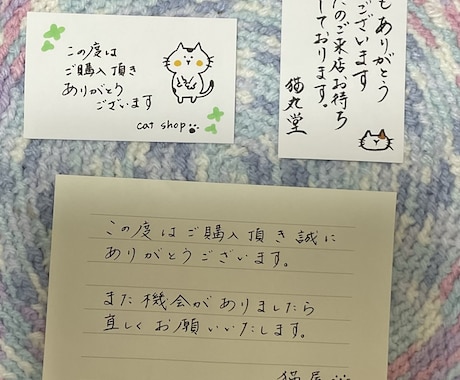 この度は
ご購入頂き
ありがとう
ございます
cat shop
もありがとう
ございます
たのご来店お待ち
しております。
猫丸堂
この度はご購入頂き誠に
ありがとうございます。
また機会がありましたら
宜しくお願いいたします。
猫屋